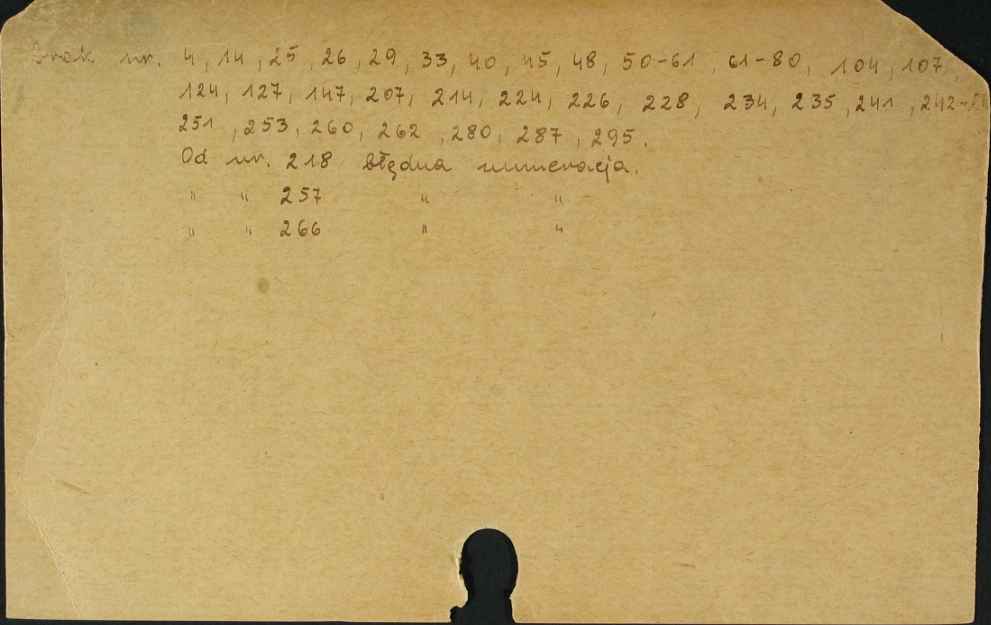 brak nr. 4, 14, 25, 26, 29, 33, 40, 45, 48, 50-61, 61-80, 104, 107,
124, 127, 147, 207, 214, 224, 226, 228, 234, 235, 241, 242-
251, 253, 260, 262, 280, 287, 295.
Od nr. 218 błędna numeracja.
" " 257 " "
" " 266 " "